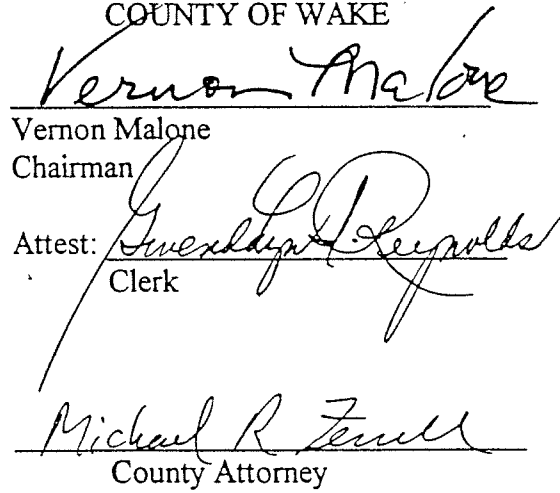 COUNTY OF WAKE
Vernon Malone
Vernon Malone
Chairman
Attest: Gwendolyn I. Reynolds
Clerk
Michael R Ferrell
County Attorney